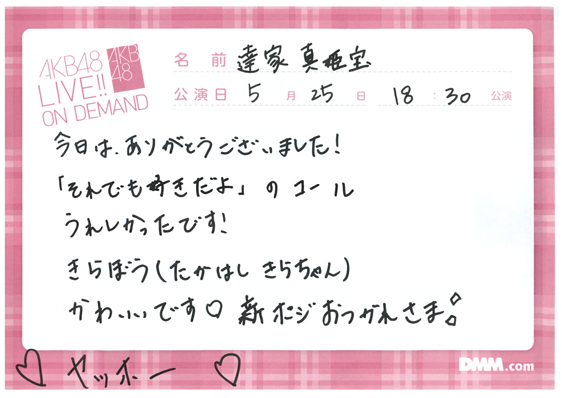 AKB48
LIVE!!
ON DEMAND
AKB
48
名前 達家真姫宝
公演日 5月25日 18:30 公演
今日は、ありがとうございました!
「それでも好きだよ」のコール
うれしかったです!
きらぼう(たかはし きらちゃん)
かわいいです♡ 新ポジおつかれさま!
♡ ヤッホー ♡
DMM.com